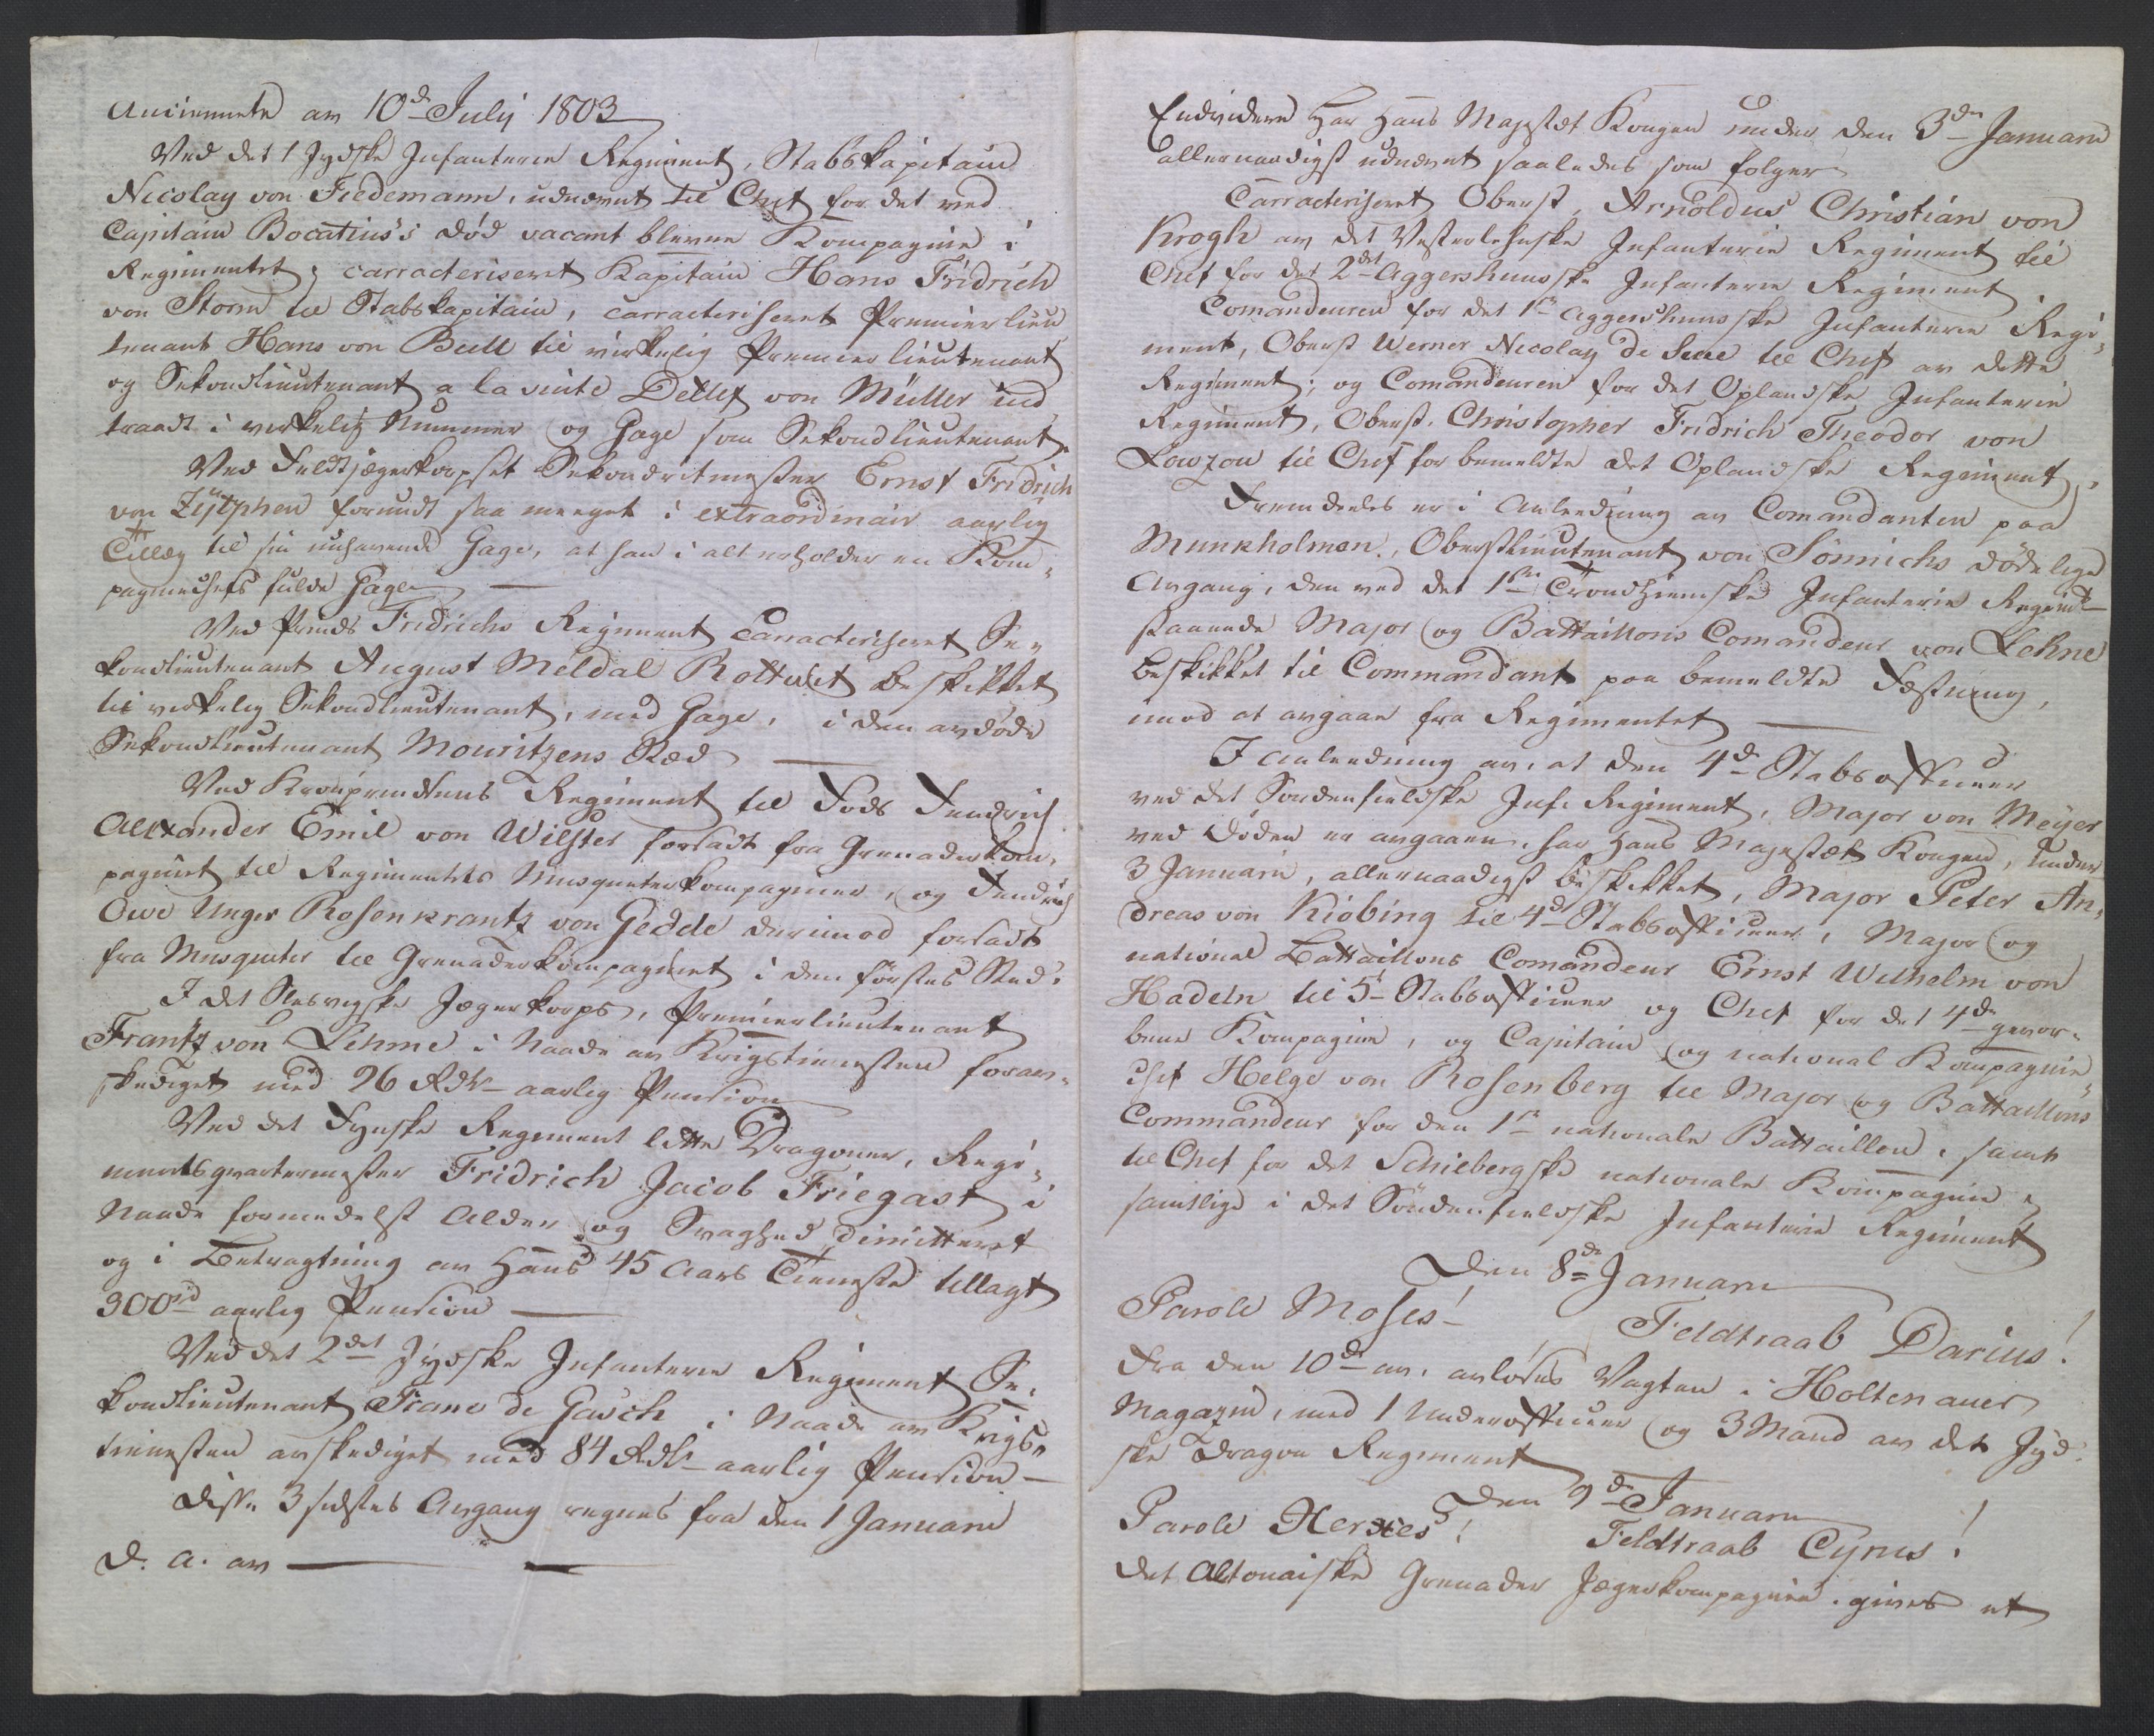 Anciennete av 10de July 1803
Ved det 1 Jydske Infanterie Regiment, Stabskapitain
Nicolay von Tiedemann, udnævnt til Chef for det ved
Capitain Bocatius's Død vacant blevne Kompagnie i
Regimentet; carracteriseret Kapitain Hans Fridrich
von Storm til Stabskapitain, carracteriseret Premierlieu
tenant Hans von Bull til virkelig Premierlieutenant
og Sekondlieutenant a la suite Detlef von Müller ind
traadt i virkelig Nummer og Gage som Sekondlieutenant.
Ved Feldtjægerkorpset Sekondritmester Ernst Fridrich
von Zütphen forundt saa meeget i extraordinair aarlig
Tillæg til sin nuhavende Gage, at han i alt erholder en Kom-
pagniechefs fulde Gage
Ved Prinds Fridrichs Regiment Carracteriseret Se-
kondlieutenant August Meldal beskikket
til virkelig Sekondlieutenant, med Gage, i den avdøde
Sekondlieutenant Mouritzens Sted
Ved Kronprindsens Regiment til Fods Fendrich
Alexander Emil von Wilster forsadt fra Grenaderkom-
pagniet til Regimentets Musqueterkompagnier, og Fendrich
Owe Unger Rosenkrantz von Gedde derimod forsadt
fra Musqueter til Grenaderkompagniet i den førstes Sted.
I det Slesvigske Jægerkorps, Premierlieutenant
Frantz von Lehme i Naade av Krigstienesten forav-
skediget med 96 Rdlr aarlig Pension
Ved det Fynske Regiment lette Dragoner, Regi-
mentsqvartermester Fridrich Jacob Friegast i
Naade formedelst Alder og Svaghed dimitteret
og i Betragtning av Hans 45 Aars Tieneste tillagt
300rd aarlig Pension
Ved det 2det Jydske Infanterie Regiment Se-
kondlieutenant Frans de Gasch i Naade av Krigs-
tienesten avskediget med 84 Rdlr aarlig Pension
Disse 3 sidstes Avgang regnes fra den 1 Januarii
d. A. av
Endvidere Har Hans Majestet Kongen under den 3den Januarii
allernaadigst udnævnt saaledes som følger
Carracteriseret Oberst, Arnoldus Christian von
Krogh av det Vesterlehnske Infanterie Regiment til
Chef for det 2det Aggershuusske Infanterie Regiment
Comandeuren for det 1ste Aggershuusske Infanterie Regi-
ment, Oberst Werner Nicolay de Seue til Chef av dette
Regiment; og Comandeuren for det Oplandske Infanterie
Regiment, Oberst Christopher Fridrich Theodor von
Lowzow til Chef for bemeldte det Oplandske Regiment,
Fremdeeles er i Anleedning av Comandanten paa
Munkholmen, Oberstlieutenant von Sönnichs dödelige
Avgang, den ved det 1ste Trondhiemske Infanterie Regimt
staaende Major og Battaillons Comandeur von Lehne
beskikket til Commandant paa bemeldte Fæstning,
imod at avgaae fra Regimentet
I Anleedning av, at den 4de Stabsofficeer
ved det Söndenfieldske Inf. Regiment, Major von Meyer
ved Døden er avgaaen, har Hans Majestæt Kongen, under
3 Januarii, allernaadigst beskikket, Major Peter An-
dreas von Kiöbing til 4de Stabsofficeer, Major og
national Battaillons Comandeur Ernst Wilhelm von
Hadeln til 5te Stabsofficeer og Chef for det 4de gevor-
bene Kompagnie, og Capitain og national Kompagnie-
chef Helge von Rosenberg til Major og Battaillons
Commandeur for den 1ste nationale Battaillon, samt
til Chef for det Schiebergske nationale Kompagnie,
samtlige i det Söndenfieldske Infanterie Regiment
Den 8de Januarii
Parole Moses! Feldtraab Darius!
Fra den 10de av, avløses Vagten i Holtenauer
Magazin, med 1 Underofficeer og 3 Mand av det Jyd-
ske Dragon Regiment
Den 9de Januarii
Parole Xerxes! Feldtraab Cyrus!
Det Altonaiske Grenader Jægerkompagnie gives et